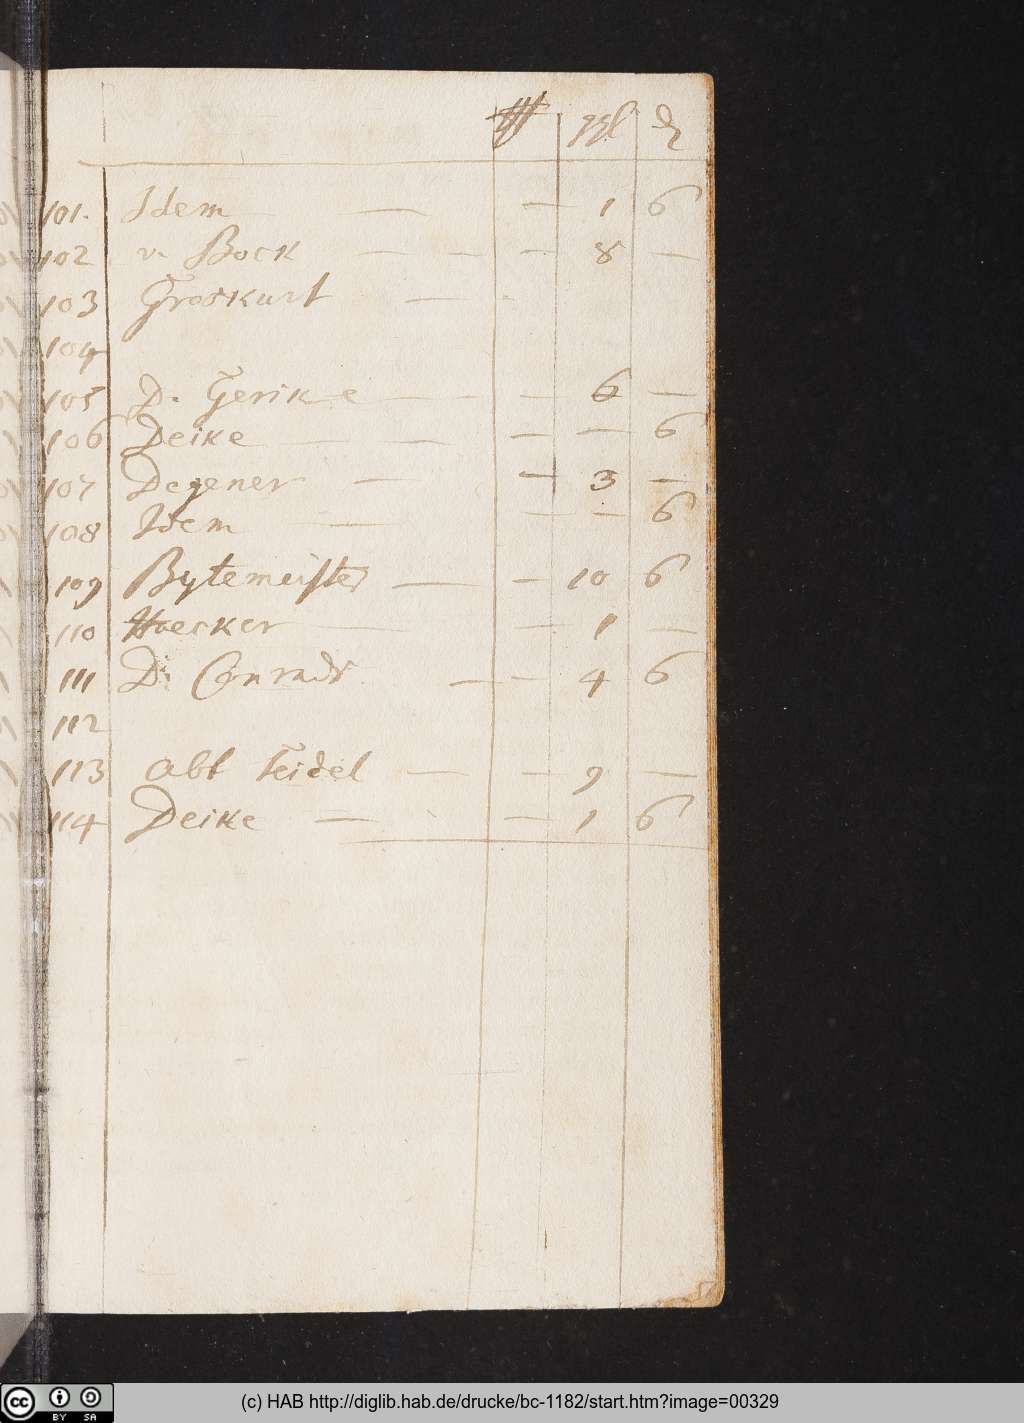 ggl ₰
101. Idem — — 1 6
102 v. Bock — — — 8 —
103 Groskurt —
104
105 D. Gerike — — 6 —
106 Deike — — — — 6
107 Degener — — 3 —
108 Idem — — — 6
109 Bytemeister — — 10 6
110 Hoecker — — 1 —
111 D. Conradi — — 4 6
112
113 Abt Seidel — — 9 —
114 Deike — — 1 6
(c) HAB http://diglib.hab.de/drucke/bc-1182/start.htm?image=00329
cc BY SA